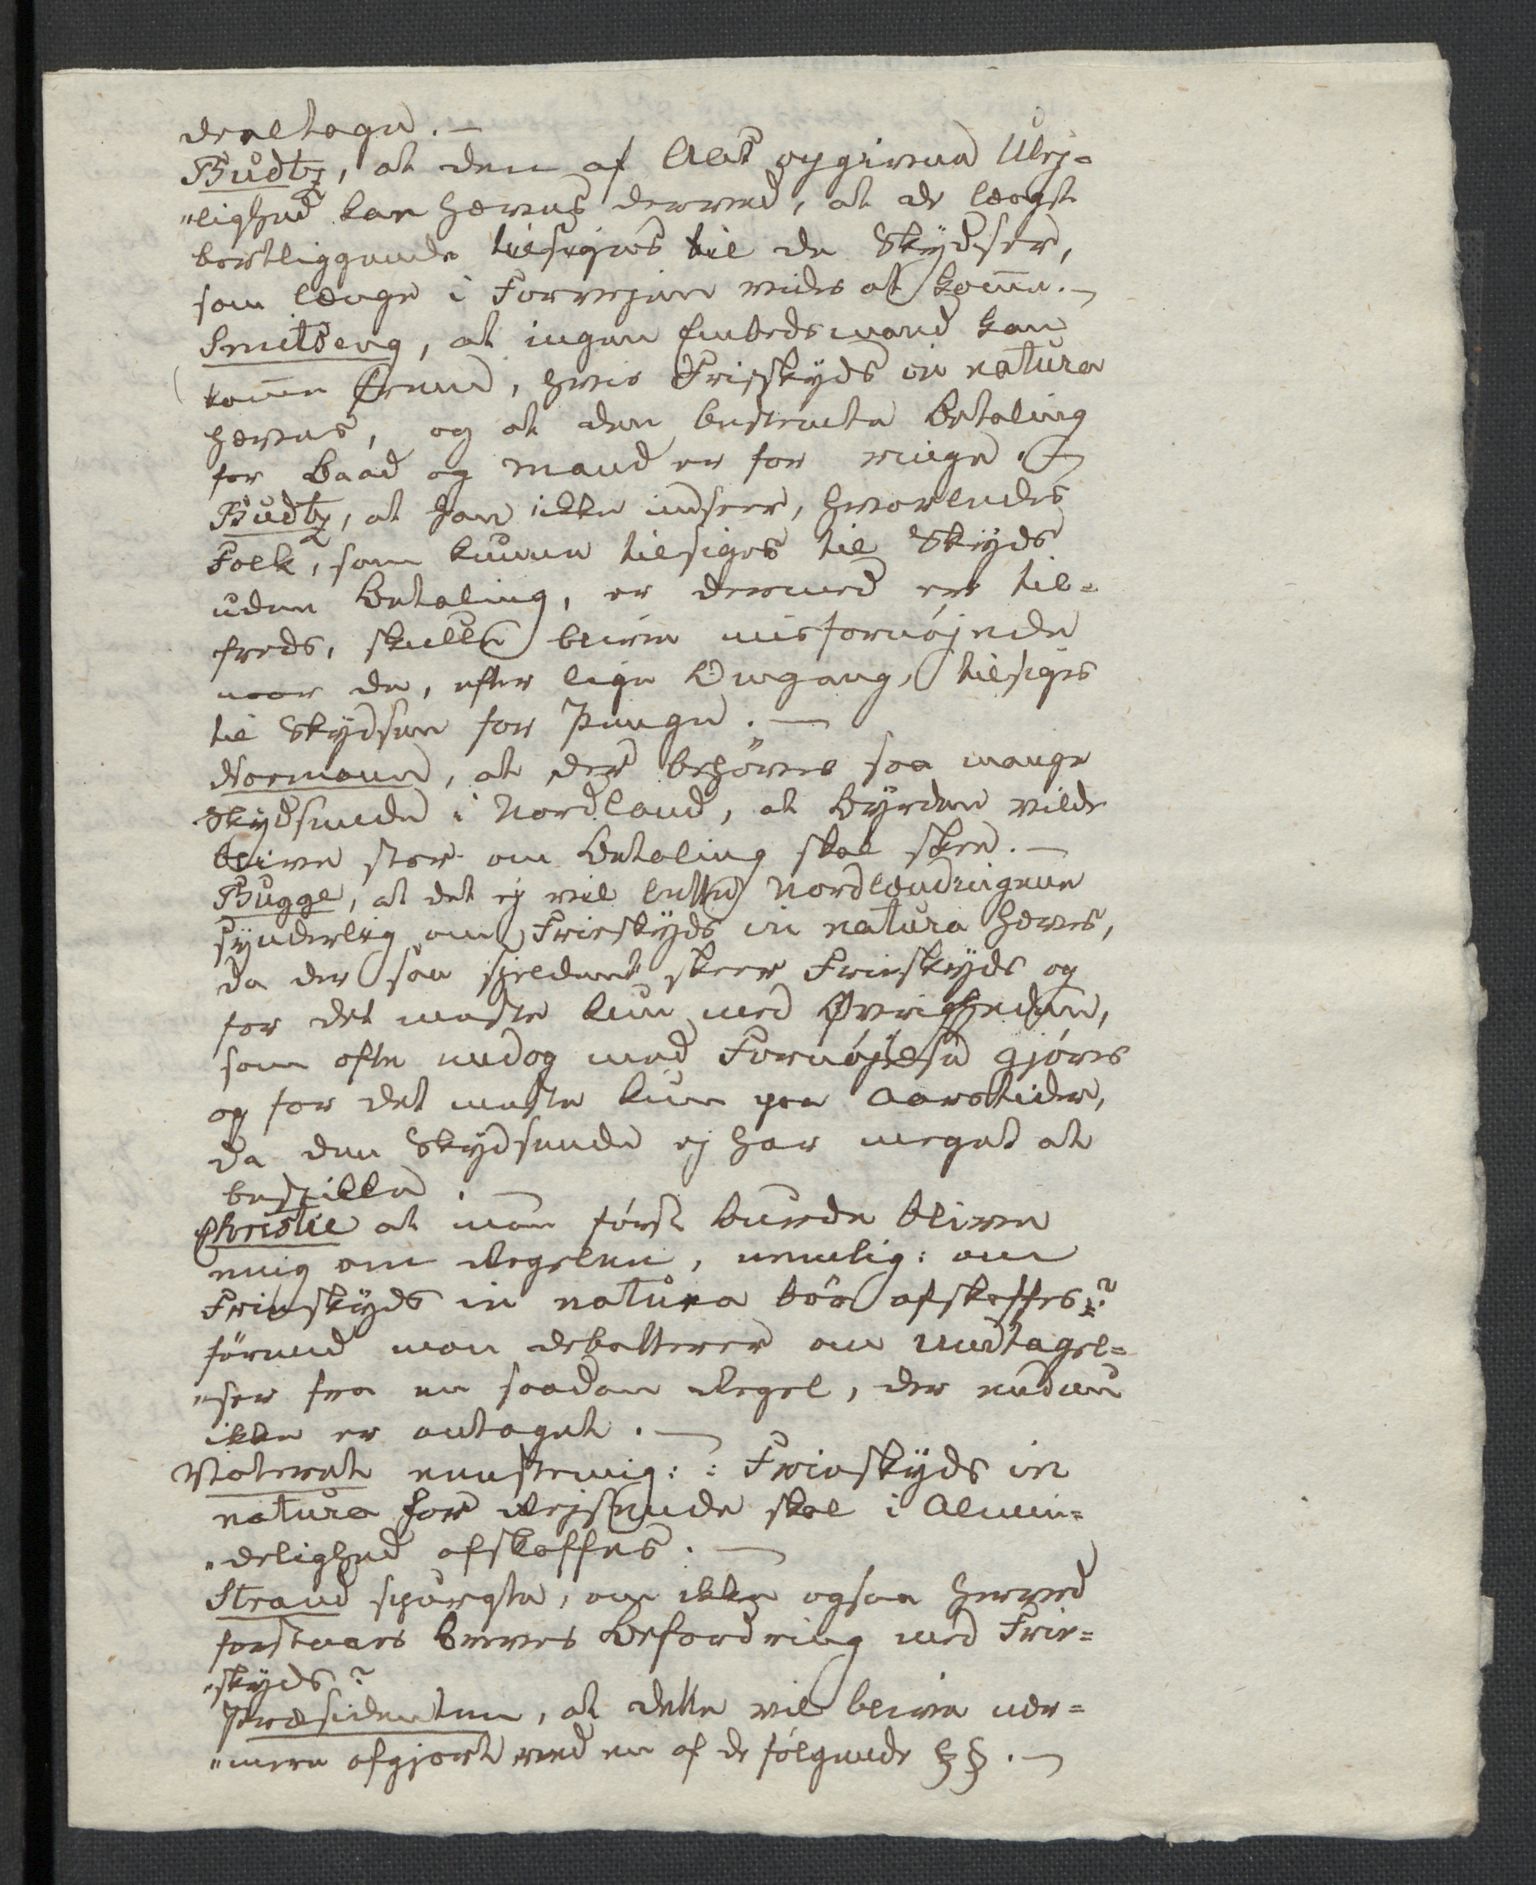 deeltagen. —
Budtz, at den af Aas opgivene Ulej-
"lighed kan hæves derved, at de længst
bortliggende tilsiges til de Skydser,
som længe i Forvejen vides at komme. —
Smitberg, at ingen Embedsmand kan
komme frem, hvis Frieskyds in natura
hæves, og at den bestemte Betaling
for Baad og Mand er for ringe. —
Budtz, at han ikke indseer, hvorledes
Folk, som kunne tilsiges til Skyds
uden Betaling, er dermed er til-
freds, skulle blive misfornøjede
naar de, efter lige Omgang, tilsiges
til Skydsen for Penge. —
Normann, at der behøves saa mange
Skydsende i Nordland, at Byrden vilde
blive stor om Betaling skal skee. —
Bugge, at det ej vil lette Nordlændingene
synderlig om Frieskyds in natura hæves,
da der saa sjeldent skeer Frieskyds og
for det meste kun med Øvrigheden,
som ofte endog med Fornøjelse gjøres
og for det meste kun paa Aarstider,
da den Skydsende ej har meget at
bestille. —
Christie at man først burde blive
enig om Regelen, nemlig: om
Frieskyds in natura bør afskaffes?
førend man debatterer om Undtagel-
"ser fra en saadan Regel, der endnu
ikke er antaget. —
Voteret eenstemig: : Frieskyds in
natura for Rejsende skal i Almin-
"delighed afskaffes. —
Strand spurgte, om ikke ogsaa herved
forstaaes Breves Befordring med Frie-
"skyds?
Præsidenten, at dette vil blive nær-
"mere afgjort ved en af de følgende §§. —